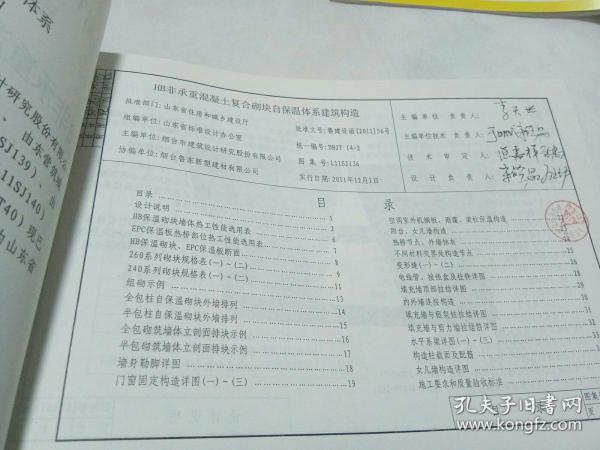 体系
计研究股份有限公
山东营筑地
SJ139）、
11SJ140）
T40）现巴
山东省
HB非承重混凝土复合砌块自保温体系建筑构造
批准部门：山东省住房和城乡建设厅
组编单位：山东省标准设计办公室
主编单位：烟台市建筑设计研究股份有限公司
协编单位：烟台鲁东新型建材有限公司
批准文号：鲁建设函[2011]56号
统一编号：DBJT 14-2
图集号：L11SJ136
实行日期：2011年12月1日
主编单位负责人：
主编单位技术负责人：
技术审定人：
设计负责人：
目录 1
设计说明 2
HB保温砌块墙体热工性能选用表
EPC保温板热桥部位热工性能选用表 6
HB保温砌块、EPC保温板断面 7
260系列砌块规格表(一)~(二) 9
240系列砌块规格表(一)~(二) 11
组砌示例 13
全包柱自保温砌块外墙排列 14
半包柱自保温砌块外墙排列 15
全包砌筑墙体立剖面排块示例 16
半包砌筑墙体立剖面排块示例 17
墙身勒脚详图 18
门窗固定构造详图(一)~(三) 19
空调室外机搁板、雨蓬、梁柱保温构造
阳台、女儿墙构造
热桥节点、外墙抹灰
不同材料交界处构造节点
变形缝(一)~(二)
电线管、接线盒及挂件详图
填充墙顶部拉结详图
内外墙连接构造
填充墙与框架柱拉结详图 31
填充墙与剪力墙拉结筋详图 32
水平系梁详图(一)~(三) 33
构造柱截面及配筋
女儿墙构造详图
施工要求和质量验收标准
图集号
页
孔夫子旧书网
www.kongfz.com